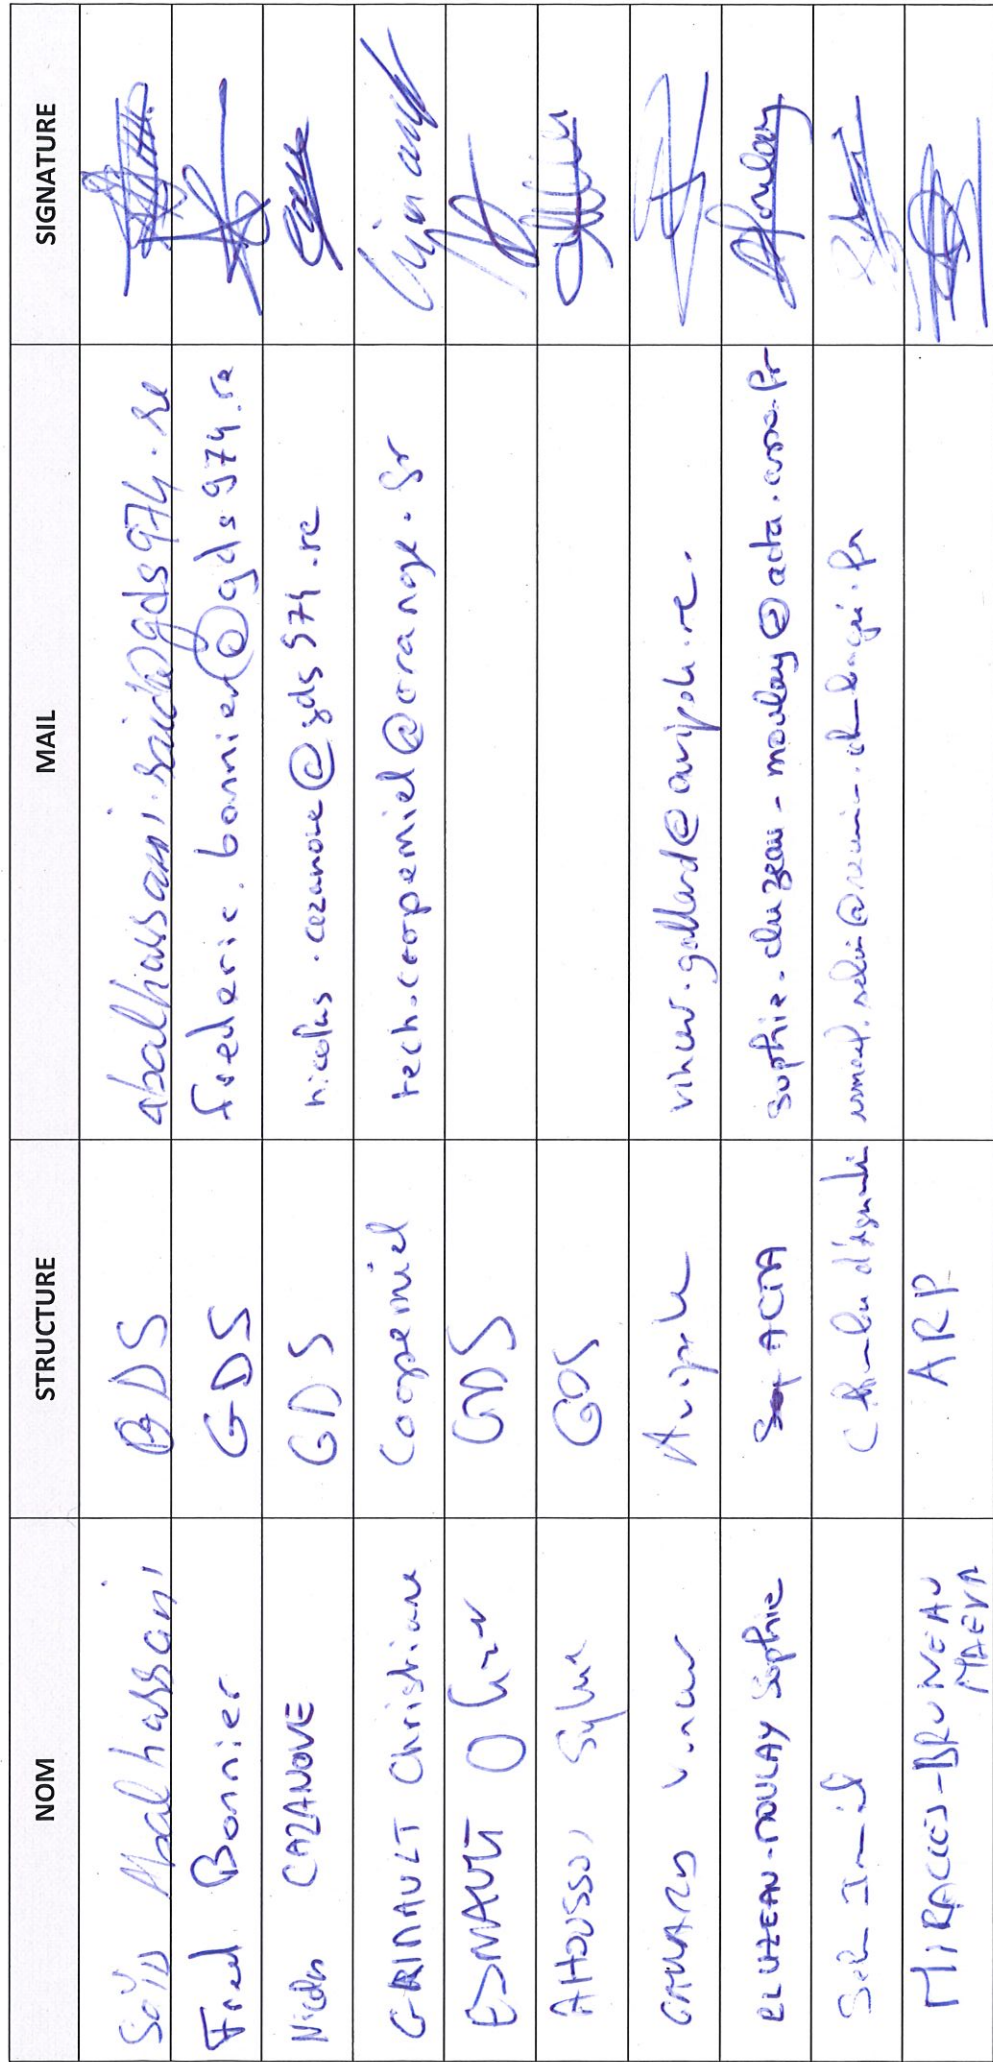 NOM STRUCTURE MAIL SIGNATURE
Saïd Abalhassani GDS abalhassani.said@gds974.re
Fred Bonnier GDS frederic.bonnier@gds974.re
Nicolas CAZANOVE GDS nicolas.cazanove@gds974.re
GRIMAULT Christiane Coopemiel tech.coopemiel@orange.fr
ESNAULT Olivier GDS
AHOUSSOU Sylvie GDS
GALLARD Vincent Avipole
CLUZEAU-MOULAY Sophie ACTA sophie.cluzeau-moulay@acta.asso.fr
Chambre d'agriculture
MIRALLES-BRUNEAU ARP
MAEVA